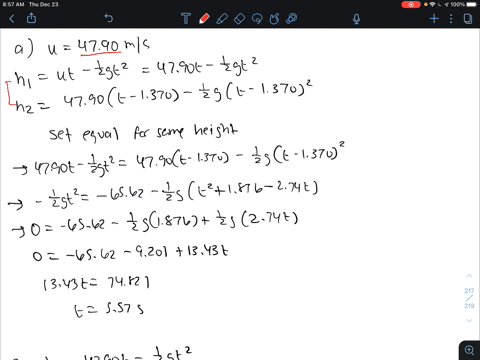 8:57 AM Thu Dec 23
a) u = 47.90 m/s
h₁ = ut - ½gt² = 47.90t - ½gt²
h₂ = 47.90(t - 1.370) - ½g(t - 1.370)²
set equal for same height
→ 47.90t - ½gt² = 47.90(t - 1.370) - ½g(t - 1.370)²
→ -½gt² = -65.62 - ½g(t² + 1.876 - 2.74t)
→ 0 = -65.62 - ½g(1.876) + ½g(2.74t)
0 = -65.62 - 9.201 + 13.43t
13.43t = 74.821
t = 5.57 s
217
/
219
47.90t - ½gt²